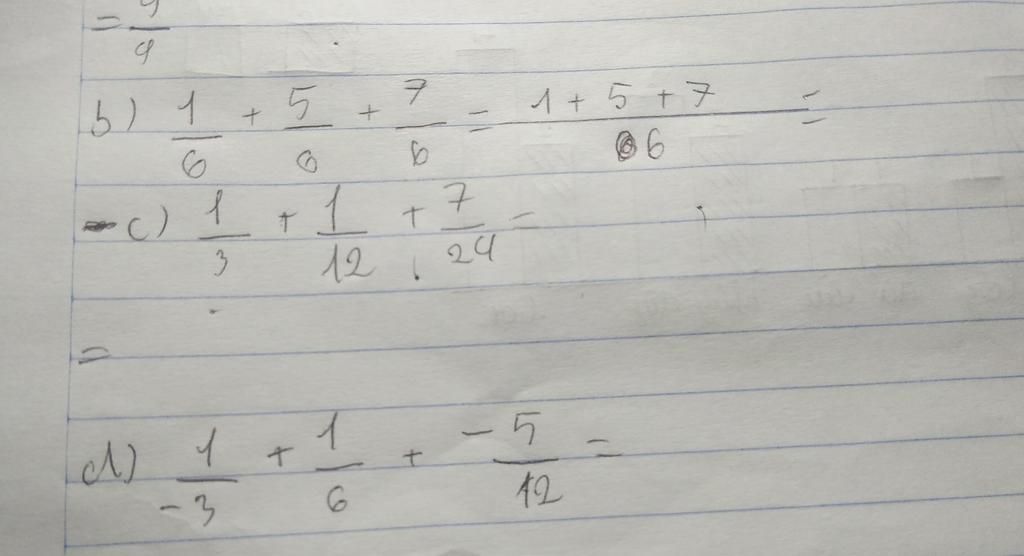 = 9/9
b) 1/6 + 5/6 + 7/6 = 1 + 5 + 7/6 =
c) 1/3 + 1/12 + 7/24 =
=
d) 1/-3 + 1/6 + -5/12 =